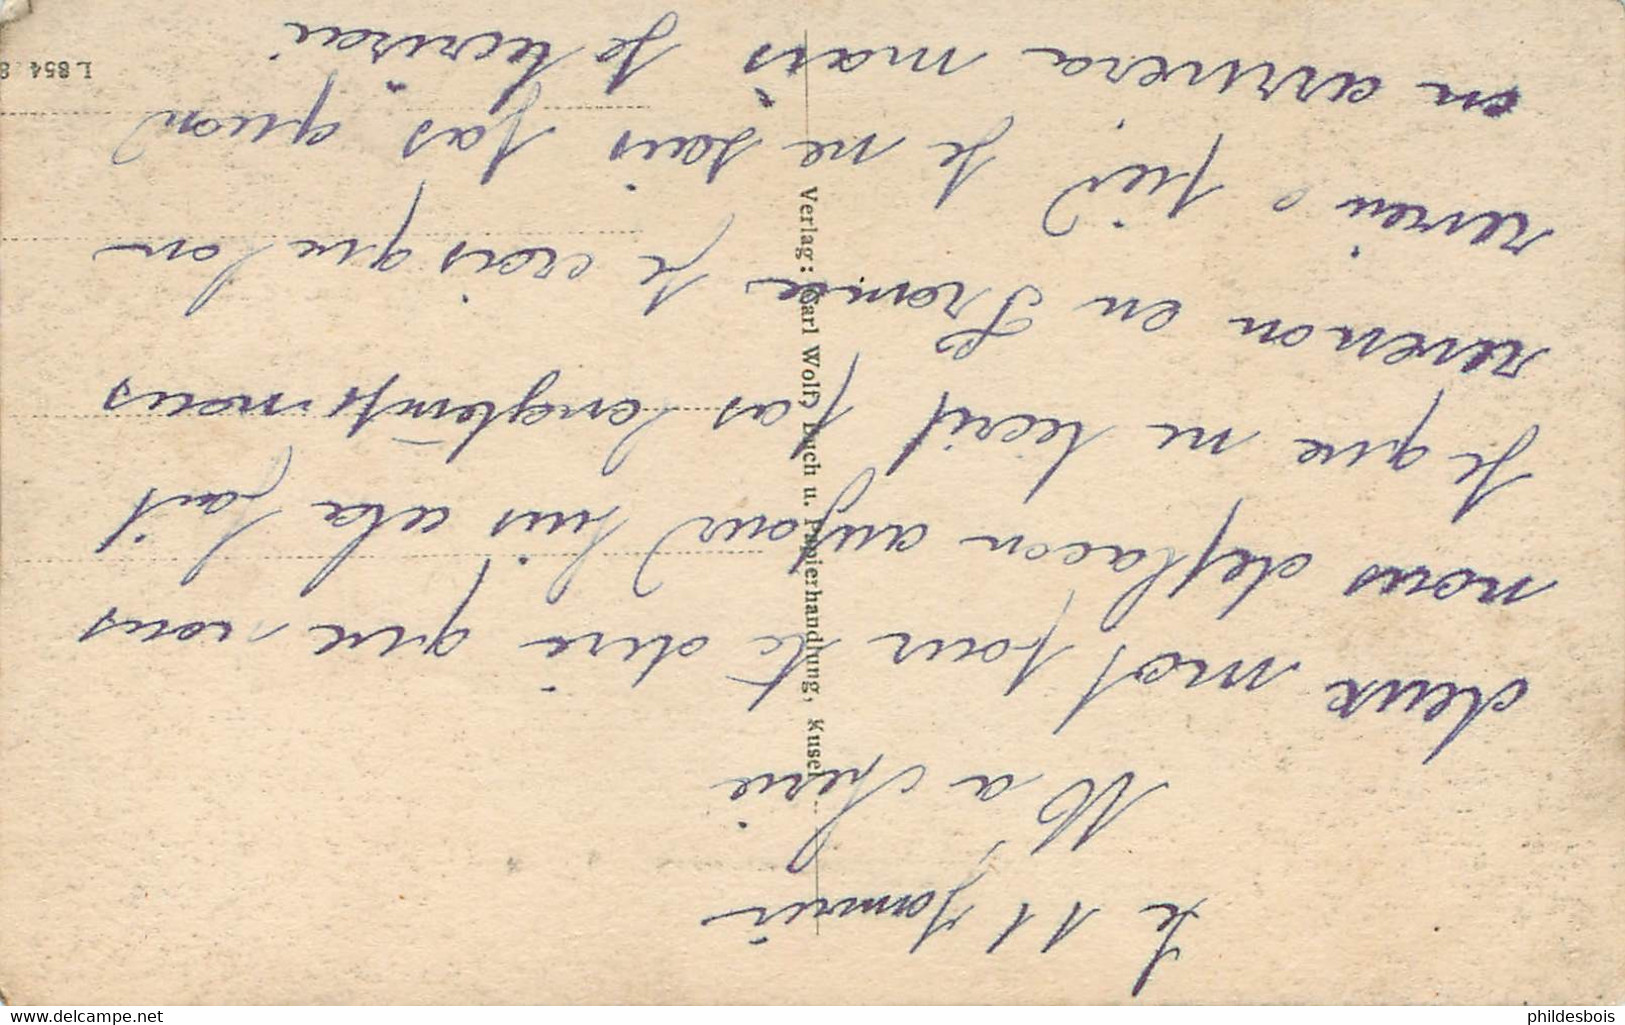 Le 11 Janvier
Ma cherie
deux mot pour te dire que nous
nous deplacon aujourd huis cela fait
Je que ne tecrit pas longtemps nous
revenon en France Je crois que lon
revien a pied Je ne sais pas quand
on arrivera mais Je tecrirai
Verlag: Carl Wolf, Buch u. Papierhandlung, Kusel
L 854
www.delcampe.net
phildesbois